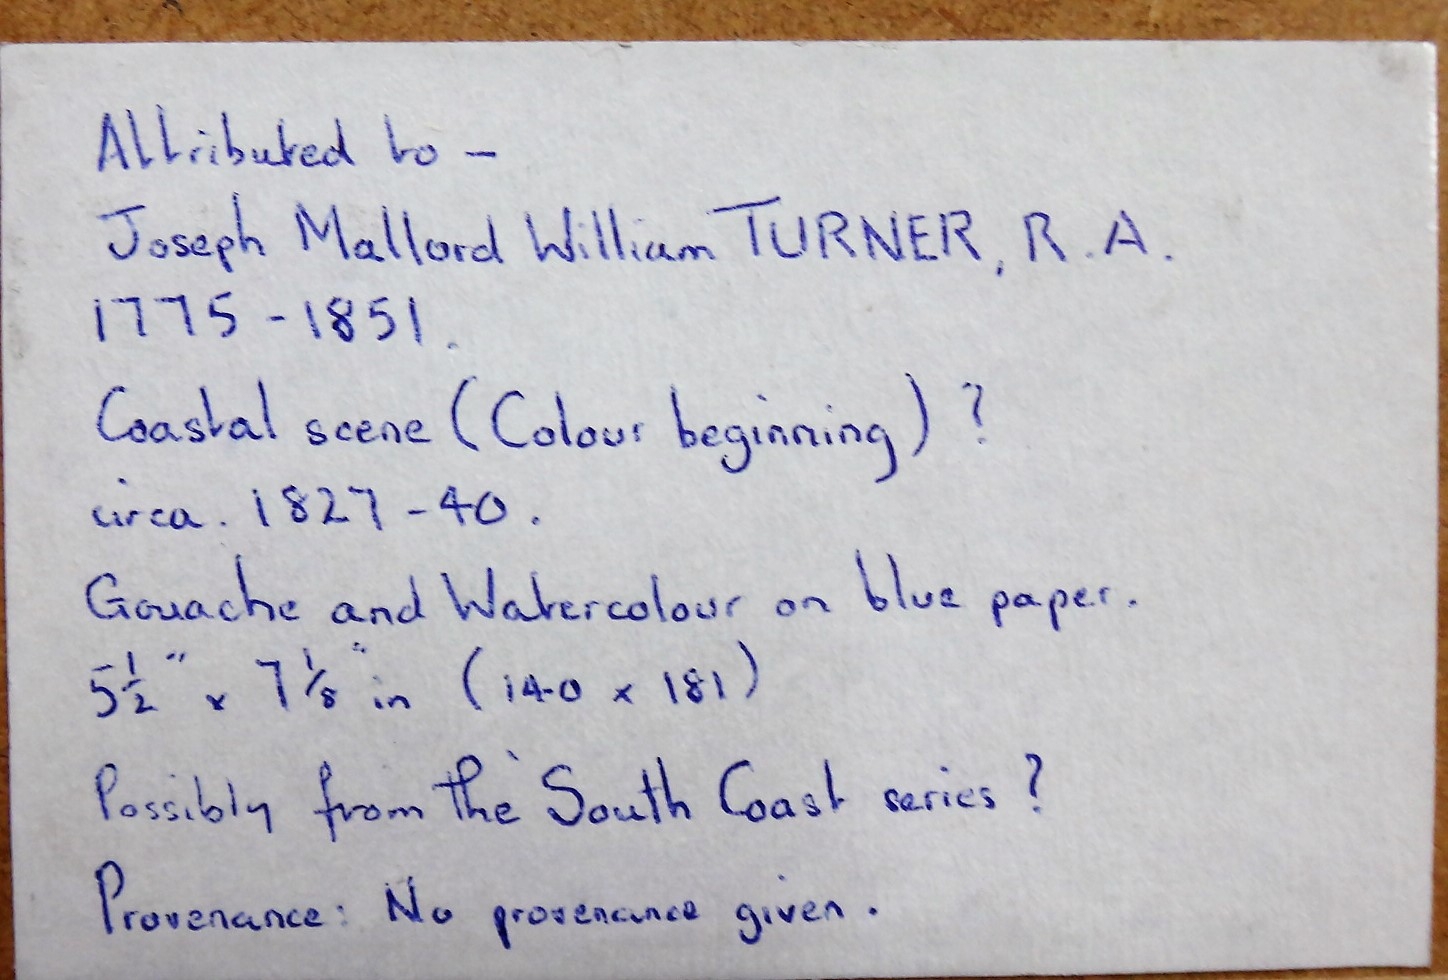 Attributed to -
Joseph Mallord William TURNER, R.A.
1775 - 1851.
Coastal scene (Colour beginning) ?
circa. 1827 - 40.
Gouache and Watercolour on blue paper.
5½" x 7⅛" in (140 x 181)
Possibly from the South Coast series ?
Provenance: No provenance given.